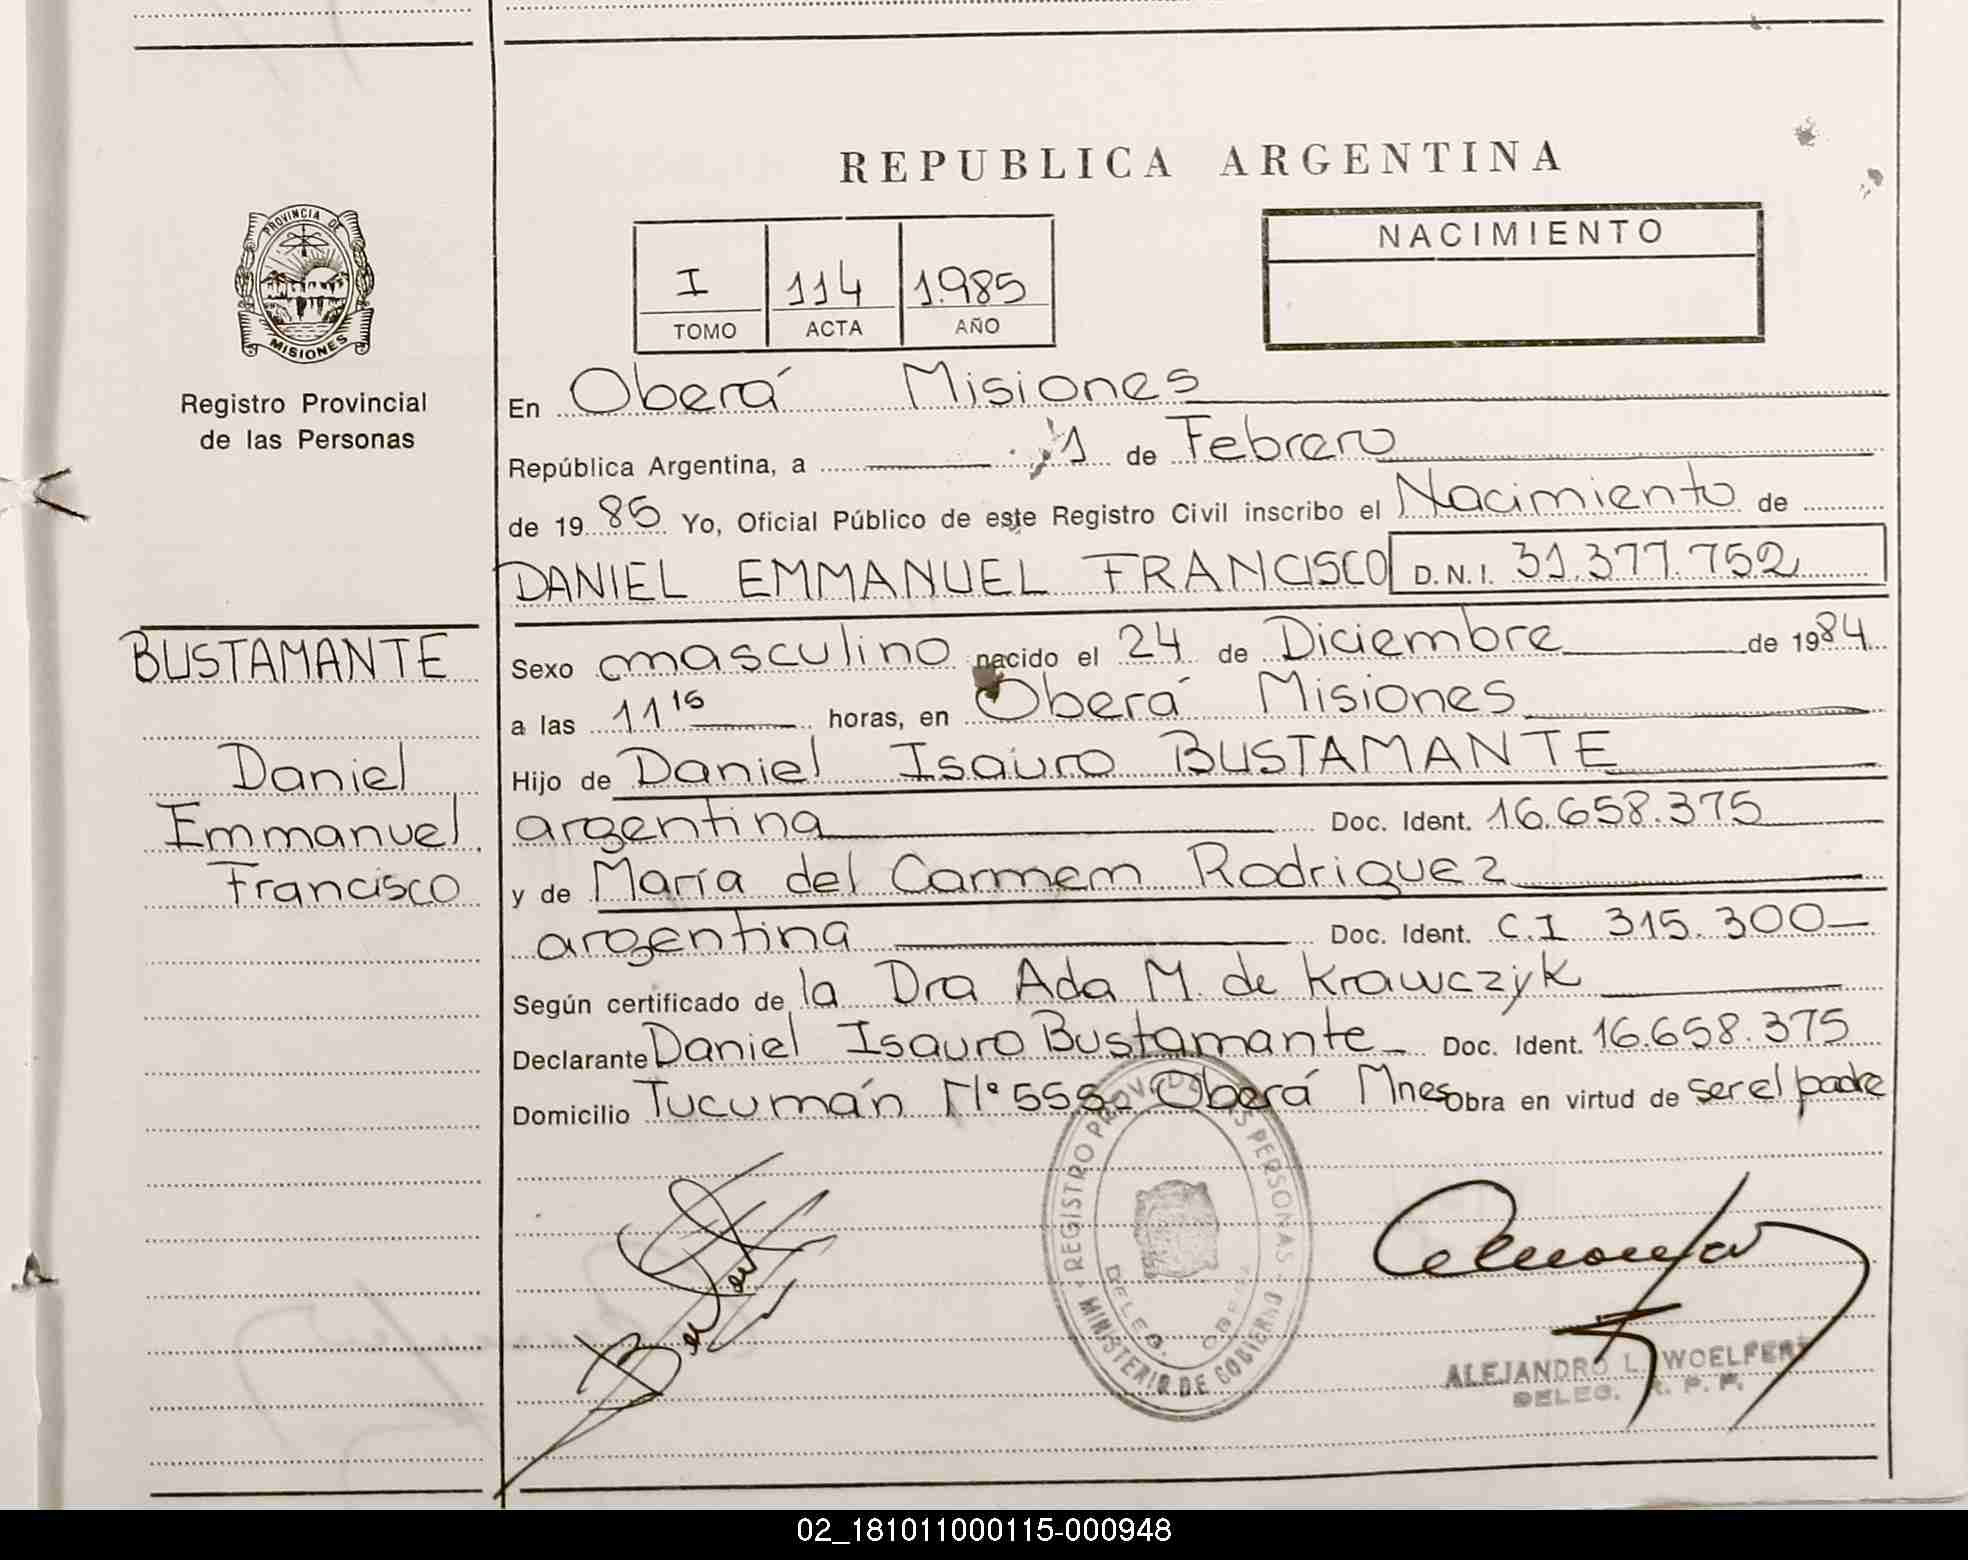 REPUBLICA ARGENTINA
PROVINCIA DE
MISIONES
Registro Provincial
de las Personas
I 114 1.985
TOMO ACTA AÑO
NACIMIENTO
En Oberá Misiones
República Argentina, a 1 de Febrero
de 19 85 Yo, Oficial Público de este Registro Civil inscribo el Nacimiento de
DANIEL EMMANUEL FRANCISCO D.N.I. 31.377.752
BUSTAMANTE
Daniel
Emmanuel
Francisco
Sexo masculino nacido el 24 de Diciembre de 1984
a las 11 15 horas, en Oberá Misiones
Hijo de Daniel Isauro BUSTAMANTE
argentina Doc. Ident. 16.658.375
y de María del Carmem Rodriguez
argentina Doc. Ident. C.I 315.300
Según certificado de la Dra Ada M. de Krawczyk
Declarante Daniel Isauro Bustamante Doc. Ident. 16.658.375
Domicilio Tucumán Nº 555 Oberá Mnes Obra en virtud de ser el padre
REGISTRO PROV. DE LAS PERSONAS
MINISTERIO DE GOBIERNO
DELEG. OBERA
ALEJANDRO L. WOELFERT
DELEG. R. P. P.
02_181011000115-000948